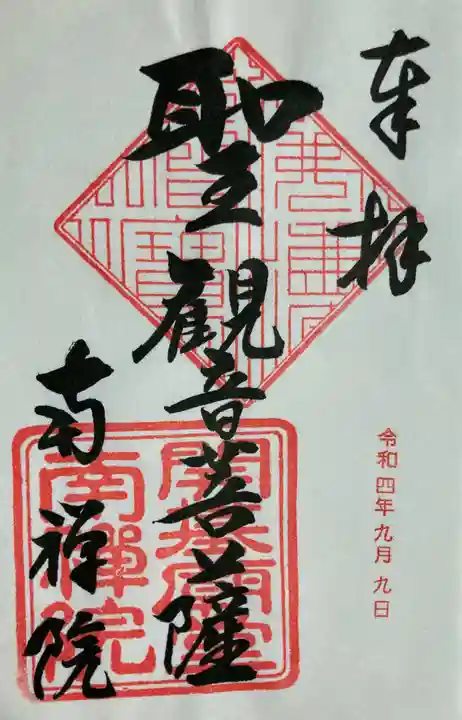 奉拝
令和四年九月九日
聖観音菩薩
南禅院
開基廟堂
南禪院